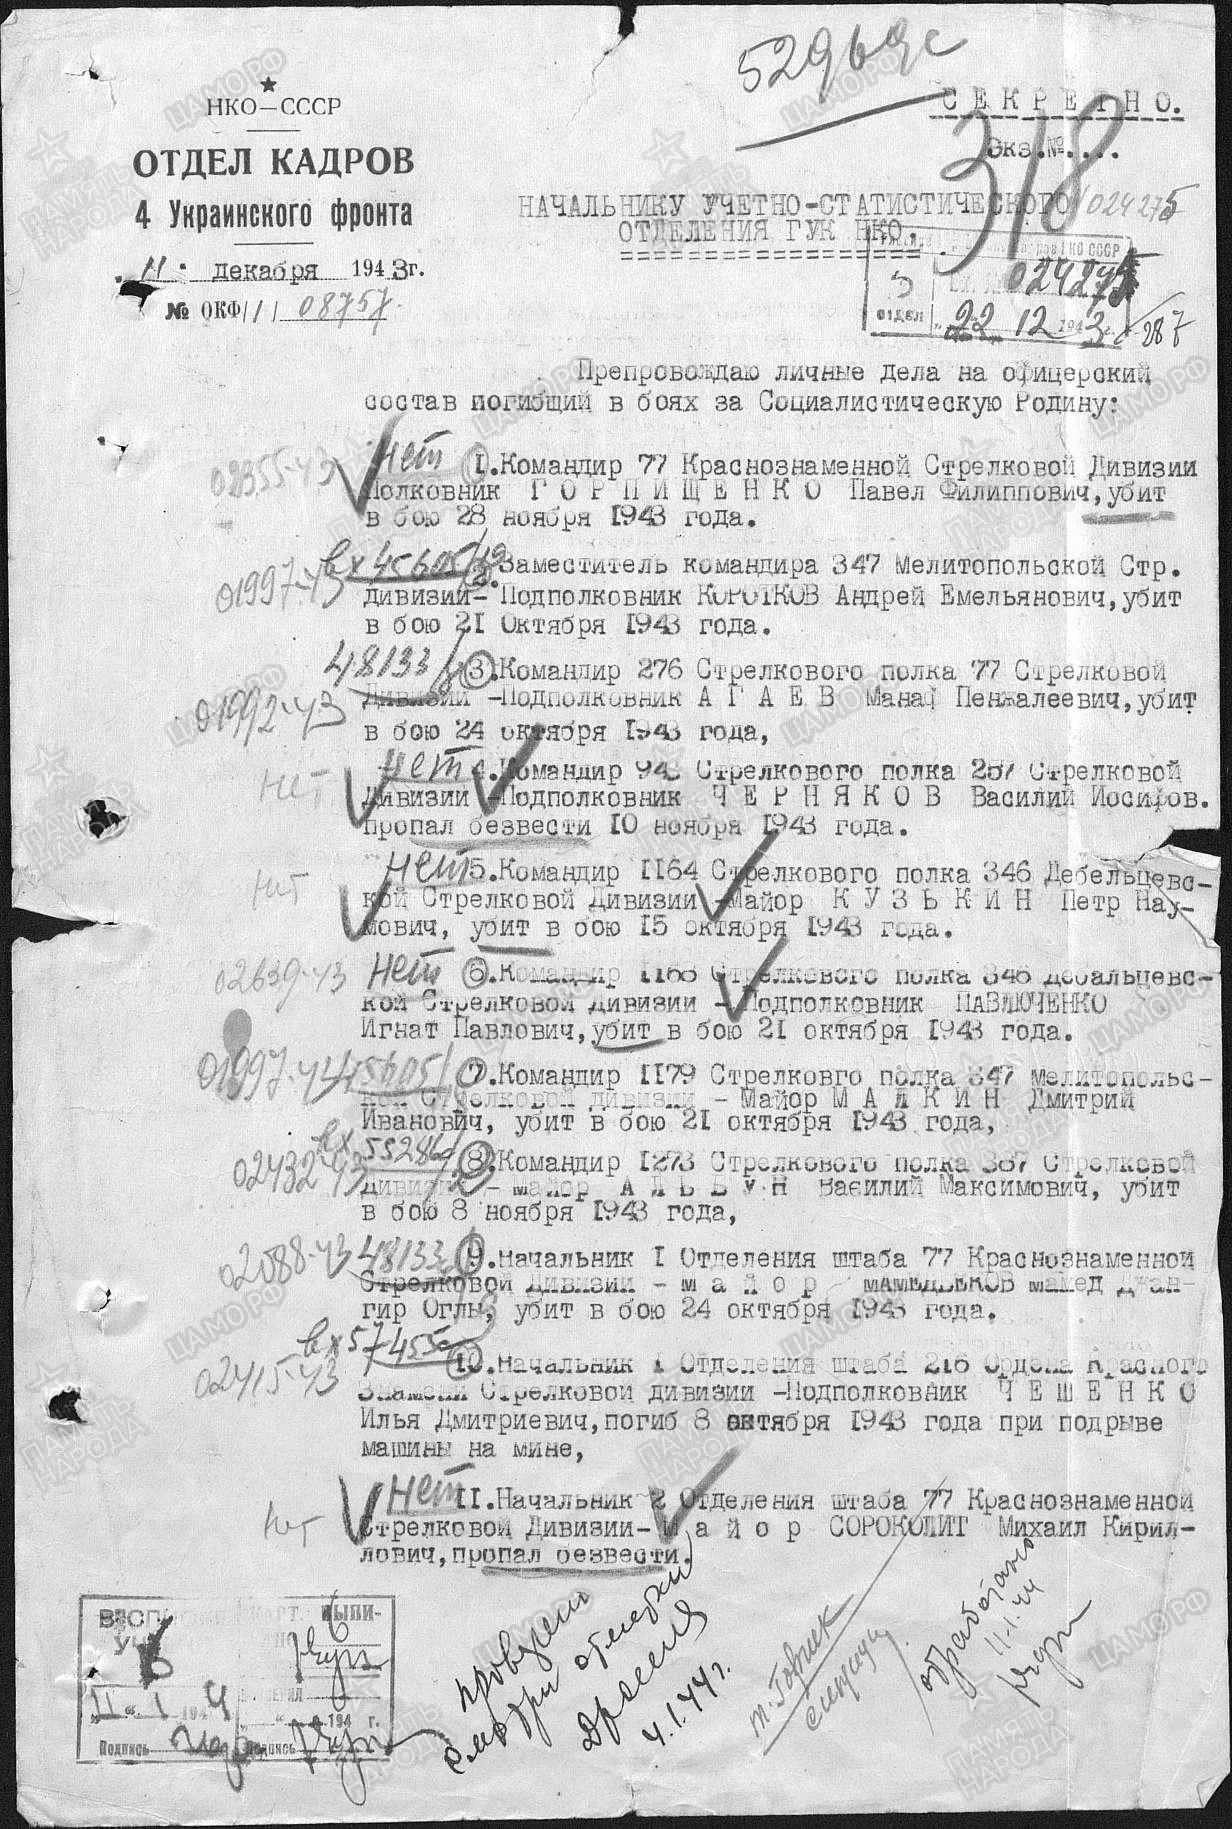 529696с
СЕКРЕТНО.
НКО—СССР
Экз.№....
318
ОТДЕЛ КАДРОВ
4 Украинского фронта
НАЧАЛЬНИКУ УЧЕТНО-СТАТИСТИЧЕСКОГО
024275
ОТДЕЛЕНИЯ ГУК НКО.
"11" декабря 1943г.
№ ОКФ/1/ 08757
НКО СССР
5
отдел
024275
"22" 12 1943г.
287
Препровождаю личные дела на офицерский
состав погибщий в боях за Социалистическую Родину:
02355-43
Нет
1.Командир 77 Краснознаменной Стрелковой Дивизии
Полковник ГОРПИЩЕНКО Павел Филиппович,убит
в бою 28 ноября 1943 года.
вх 45605
01997-43
2.Заместитель командира 347 Мелитопольской Стр.
дивизии-Подполковник КОРОТКОВ Андрей Емельянович,убит
в бою 21 Октября 1943 года.
48133
01992-43
3.Командир 276 Стрелкового полка 77 Стрелковой
Дивизии -Подполковник АГАЕВ Манаф Пенжалеевич,убит
в бою 24 октября 1943 года,
Нет
нет
4.Командир 943 Стрелкового полка 257 Стрелковой
Дивизии -Подполковник ЧЕРНЯКОВ Василий Иосифов.
пропал безвести 10 ноября 1943 года.
Нет
нет
5.Командир 1164 Стрелкового полка 346 Дебельцевс-
кой Стрелковой Дивизии -Майор КУЗЬКИН Петр Нау-
мович, убит в бою 15 октября 1943 года.
02639-43
Нет
6.Командир 1168 Стрелкового полка 346 Дебальцевс-
кой Стрелковой дивизии -Подполковник ПАВЛЮЧЕНКО
Игнат Павлович,убит в бою 21 октября 1943 года.
01997-43
45605
7.Командир 1179 Стрелковго полка 347 Мелитопольс-
кой Стрелковой дивизии -Майор МАЛКИН Дмитрий
Иванович, убит в бою 21 октября 1943 года,
вх 55286
02432-43
8.Командир 1273 Стрелкового полка 387 Стрелковой
дивизии - майор Василий Максимович, убит
в бою 8 ноября 1943 года,
02088-43
48133
9.Начальник I Отделения штаба 77 Краснознаменной
Стрелковой Дивизии - майор МАМЕДБЕКОВ Мамед Джан-
гир Оглы, убит в бою 24 октября 1943 года.
вх 57455
02415-43
10.Начальник I Отделения штаба 216 Ордена Красного
Знамени Стрелковой дивизии -Подполковник ЧЕШЕНКО
Илья Дмитриевич,погиб 8 октября 1943 года при подрыве
машины на мине,
Нет
нет
11.Начальник 2 Отделения штаба 77 Краснознаменной
Стрелковой Дивизии-майор СОРОКОЛИТ Михаил Кирил-
лович,пропал безвести.
КАРТ. ВЫПИ-
6
"11" 1 1944
" " 194 г.
Подпись
Подпись
проверено
смотри отметки
4.1.44г.
обработано
11.1.44